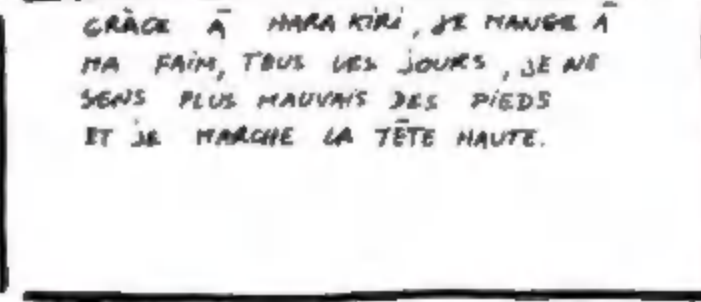 GRÂCE À HARA KIRI, JE MANGE À
MA FAIM, TOUS LES JOURS, JE NE
SENS PLUS MAUVAIS DES PIEDS
ET JE MARCHE LA TÊTE HAUTE.